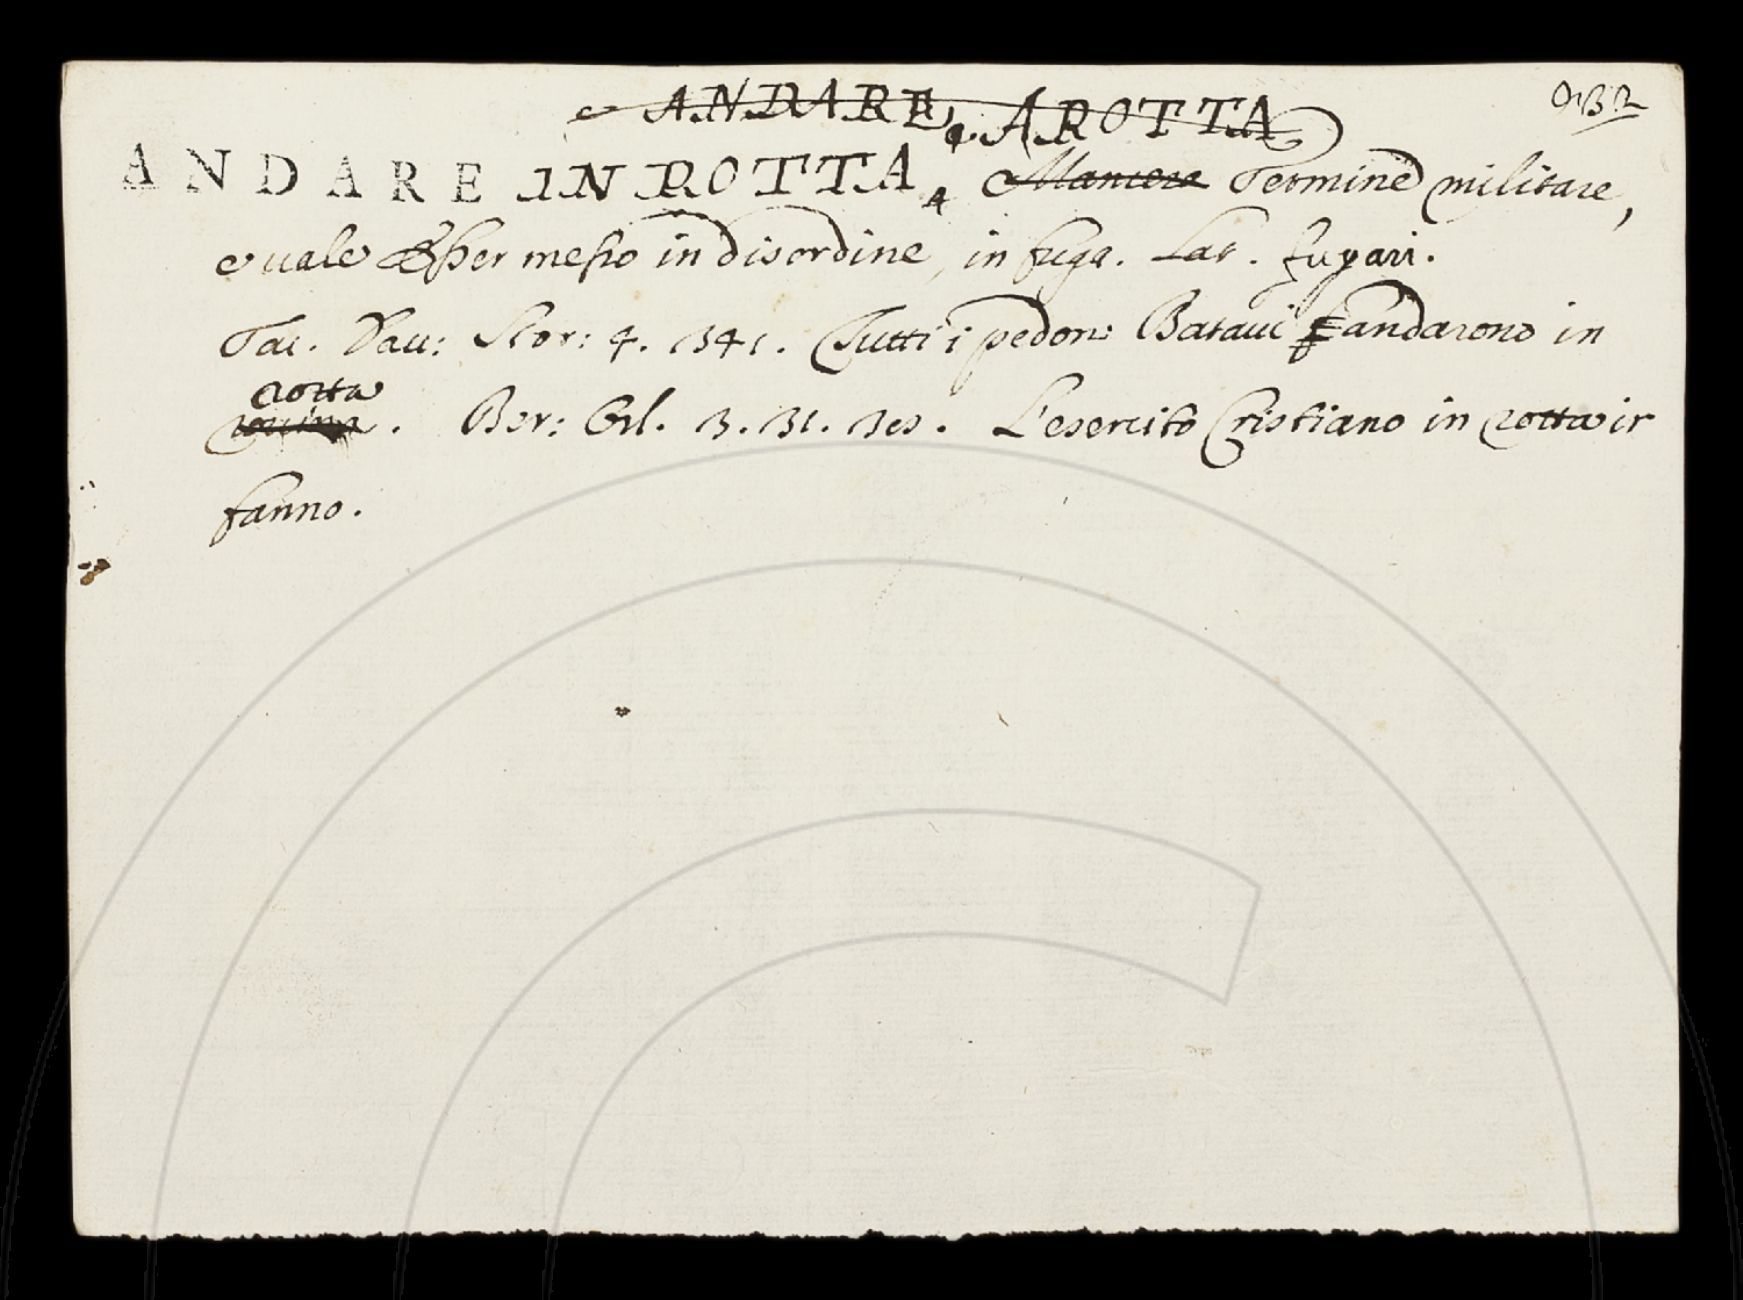 e ANDARE, A ROTTA
ANDARE IN ROTTA, Maniera Termine militare,
e vale Esser messo in disordine, in fuga. Lat. fugari.
Tac. Dav: Stor: 4. 341. Tutti i pedoni Batavi andarono in
rotta
rovina. Ber: Orl. 3. 31. L'esercito Cristiano in rotta ir
fanno.